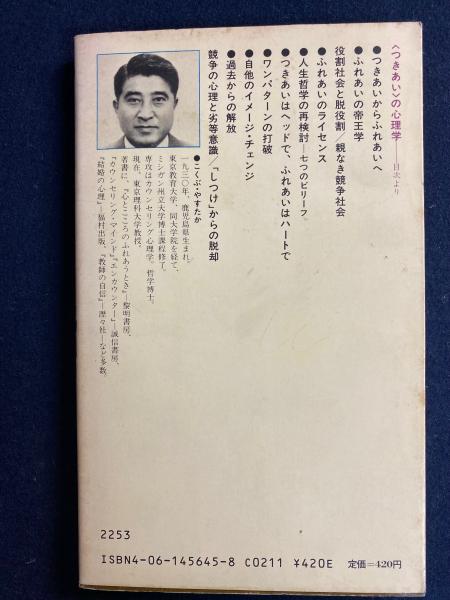 〈つきあい〉の心理学──目次より
●つきあいからふれあいへ
●ふれあいの帝王学
役割社会と脱役割／親なき競争社会
●ふれあいのライセンス
●人生哲学の再検討──七つのビリーフ。
●つきあいはヘッドで、ふれあいはハートで
●ワンパターンの打破
●自他のイメージ・チェンジ
●過去からの解放
競争の心理と劣等意識／「しつけ」からの脱却
●こくぶ・やすたか
一九三〇年、鹿児島県生まれ。
東京教育大学、同大学院を経て、
ミシガン州立大学博士課程修了。
専攻はカウンセリング心理学。哲学博士。
現在、東京理科大学教授。
著書に、『心とこころのふれあうとき』─黎明書房、
『カウンセリング・マインド』『エンカウンター』─誠信書房、
『結婚の心理』─福村出版、『教師の自信』─瀝々社─など多数。
2253
ISBN4-06-145645-8 C0211 ¥420E 定価=420円